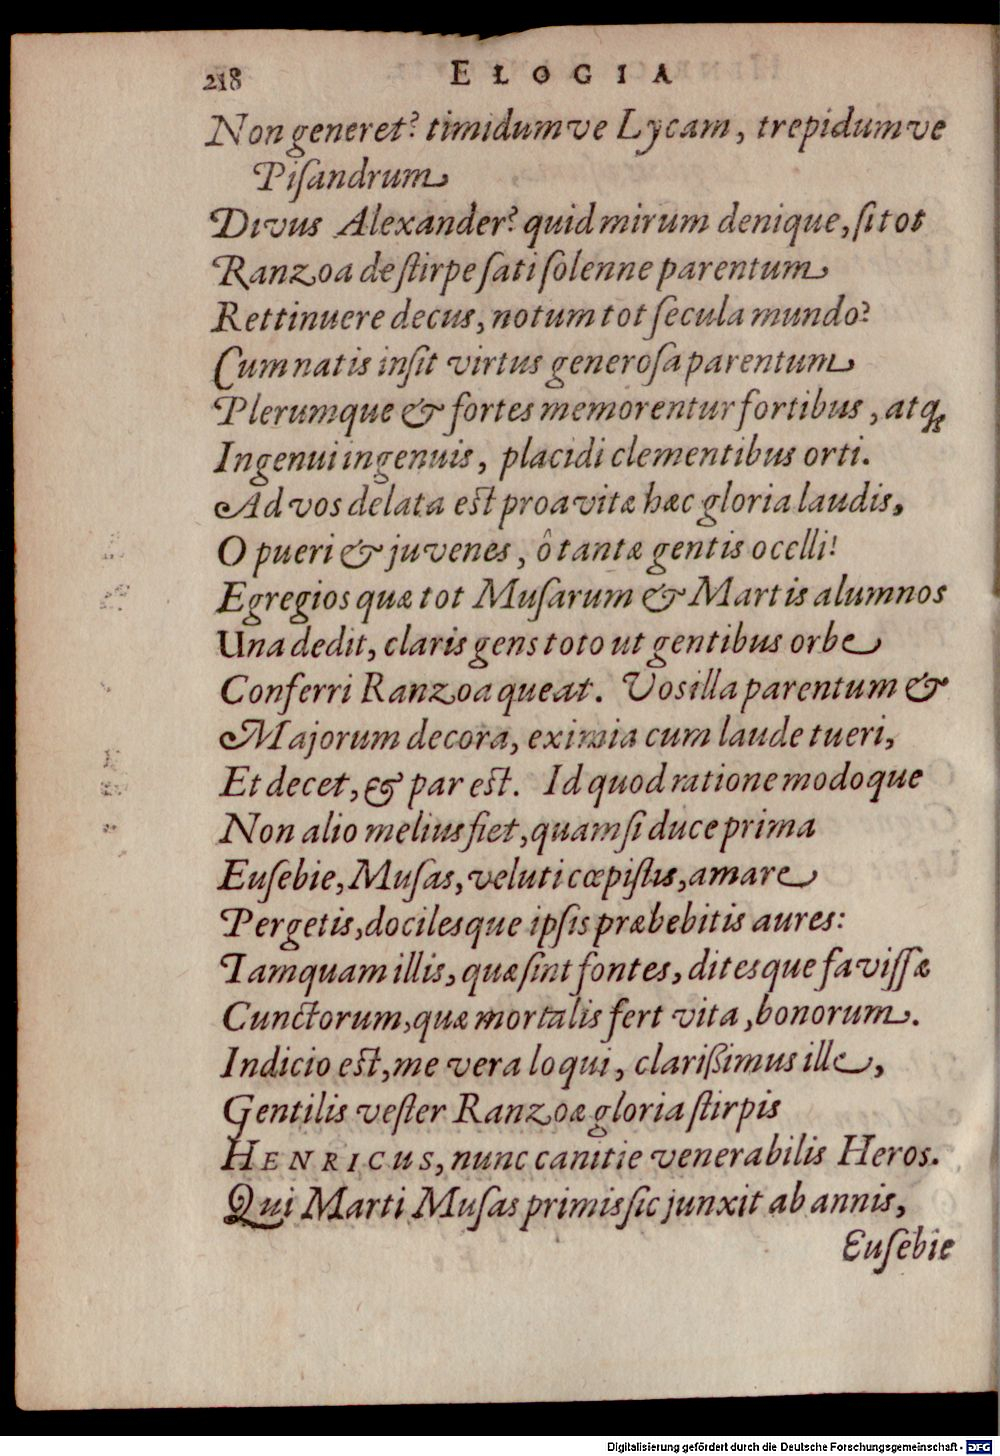 218 ELOGIA
Non generet? timidumve Lycam, trepidumve
Piſandrum
Divus Alexander? quid mirum denique, ſi tot
Ranzoa de ſtirpe ſati ſolenne parentum
Rettinuere decus, notum tot ſecula mundo?
Cum natis inſit virtus generoſa parentum
Plerumque & fortes memorentur fortibus, atq;
Ingenui ingenuis, placidi clementibus orti.
Ad vos delata eſt proavitæ hæc gloria laudis,
O pueri & juvenes, ô tantæ gentis ocelli!
Egregios quæ tot Muſarum & Martis alumnos
Una dedit, claris gens toto ut gentibus orbe
Conferri Ranzoa queat. Vos illa parentum &
Majorum decora, eximia cum laude tueri,
Et decet, & par eſt. Id quod ratione modoque
Non alio melius fiet, quam ſi duce prima
Euſebie, Muſas, veluti cœpiſtis, amare
Pergetis, docilesque ipſis præbebitis aures:
Tamquam illis, quæ ſint fontes, ditesque faviſſæ
Cunctorum, quæ mortalis fert vita, bonorum.
Indicio eſt, me vera loqui, clariſſimus ille,
Gentilis veſter Ranzoæ gloria ſtirpis
HENRICUS, nunc canitie venerabilis Heros.
Qui Marti Muſas primis ſic junxit ab annis,
Euſebie
Digitalisierung gefördert durch die Deutsche Forschungsgemeinschaft - DFG